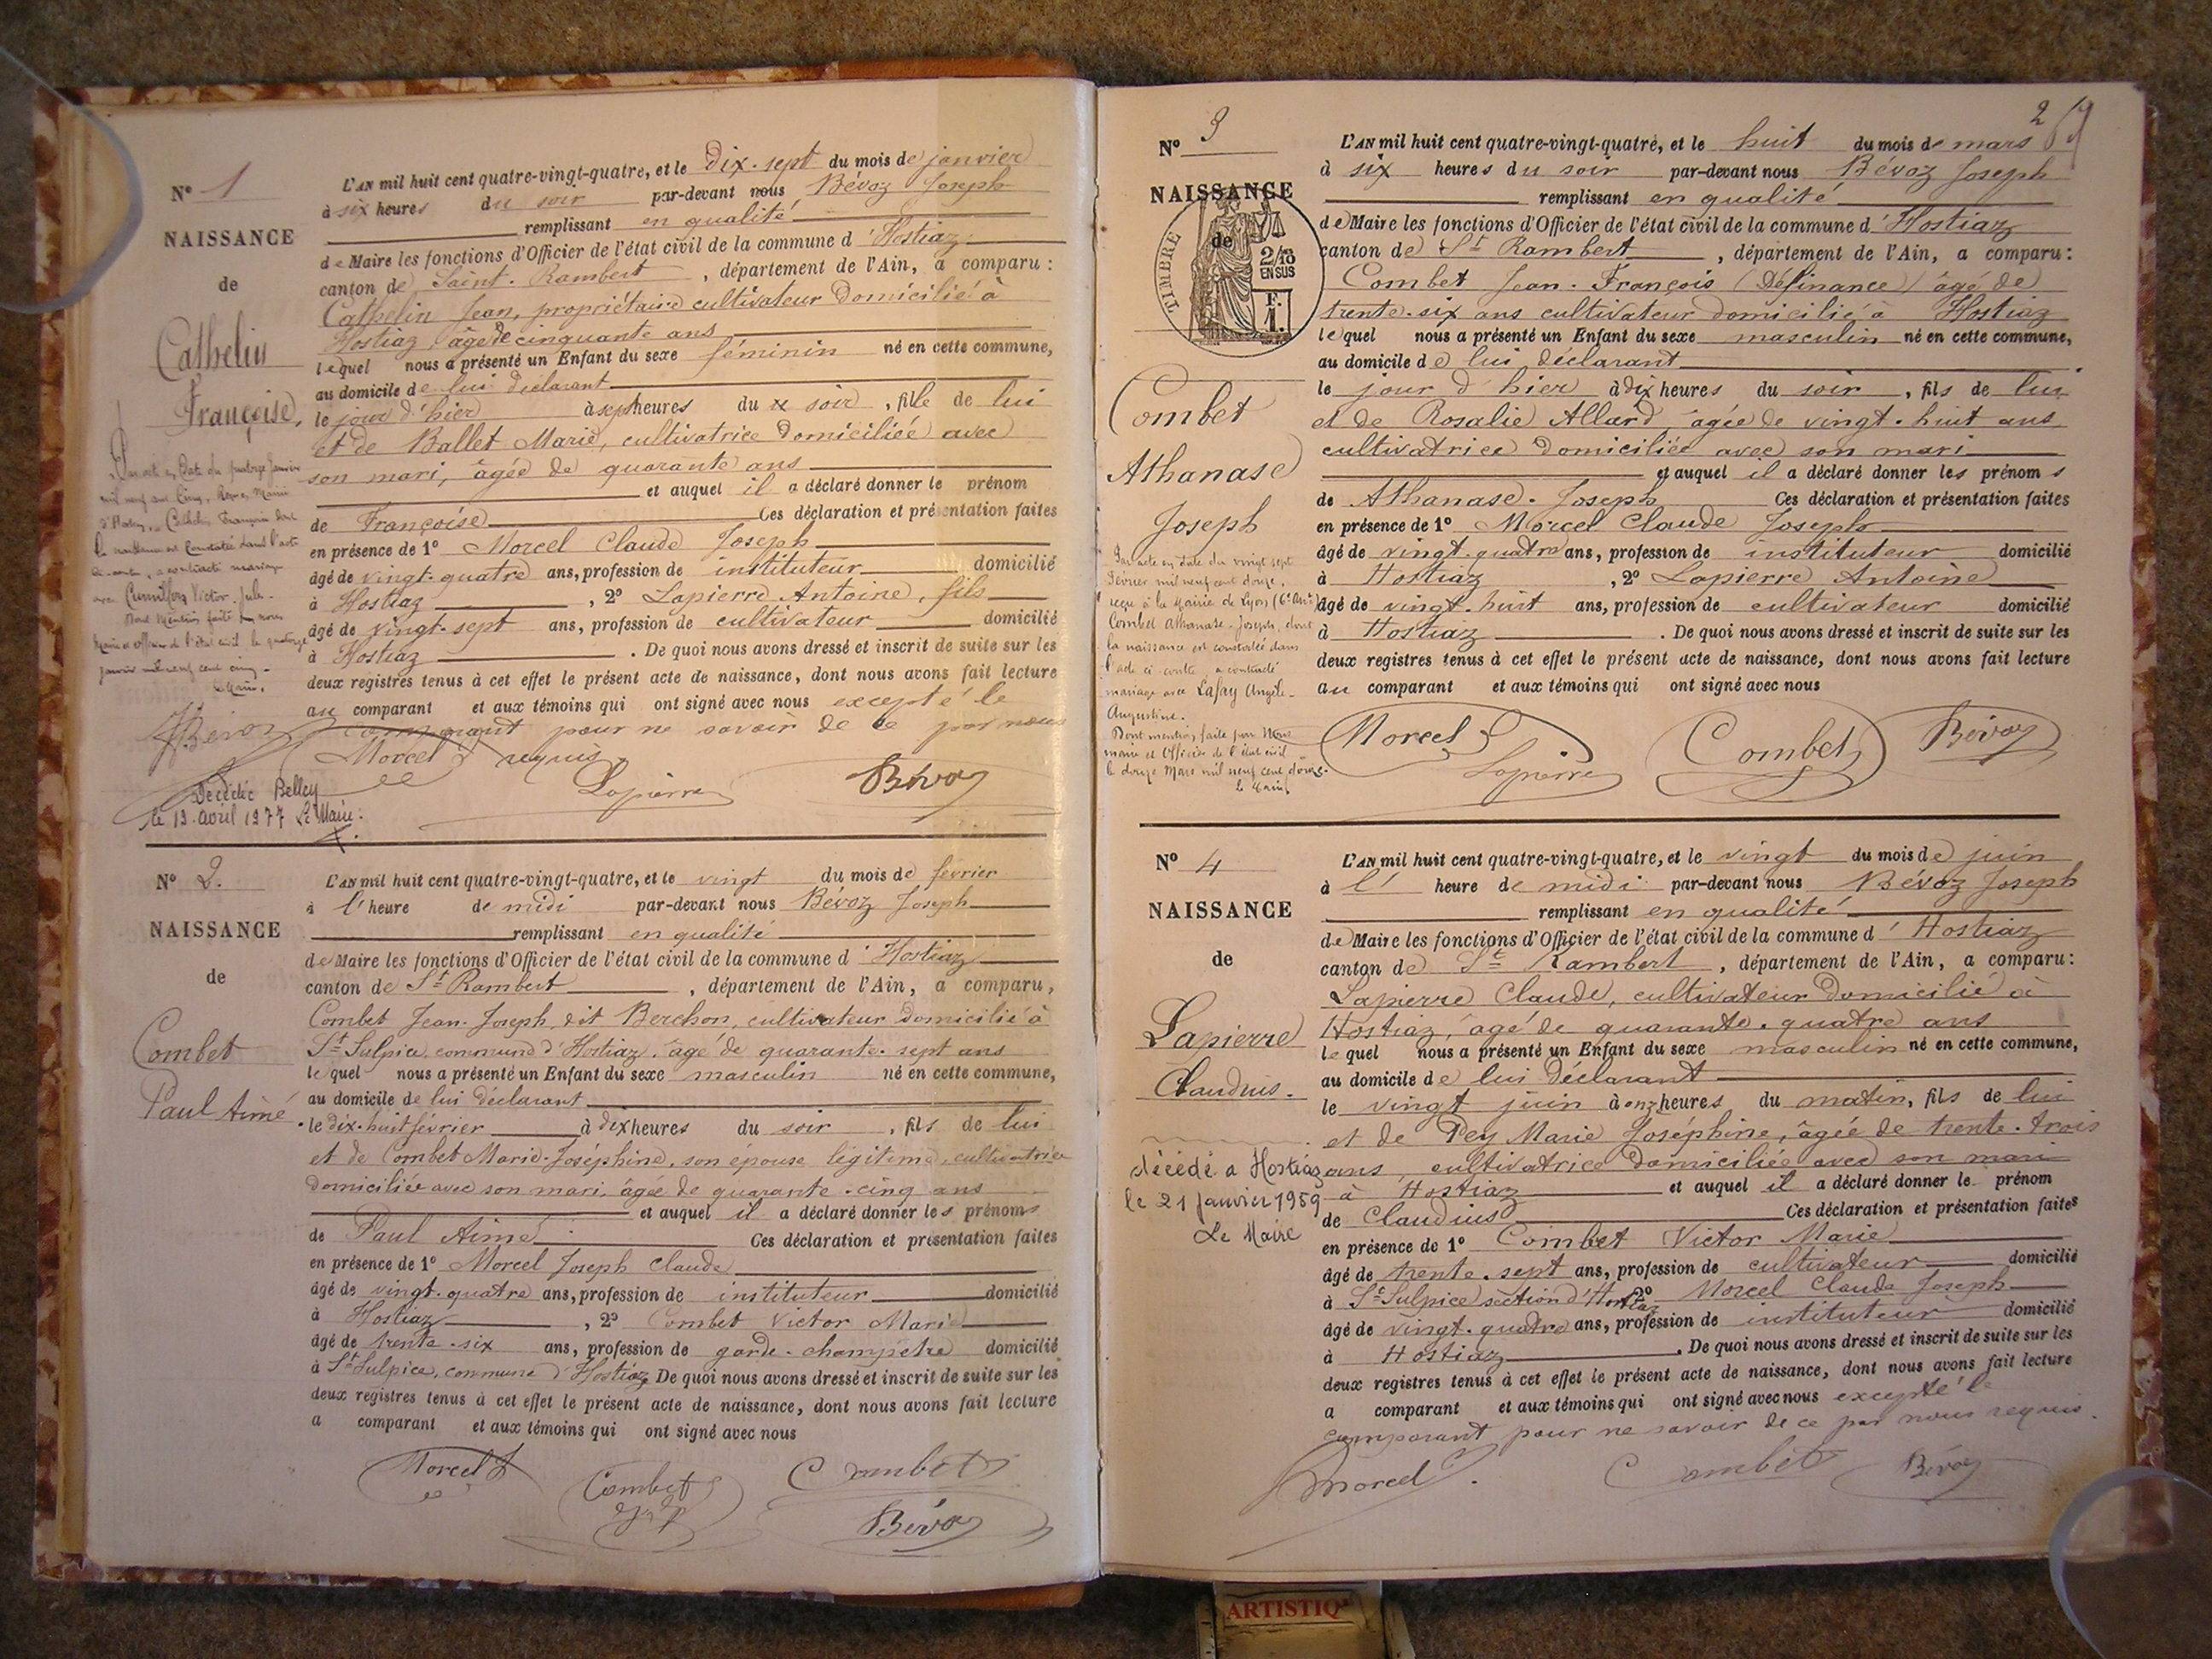 N° 1
NAISSANCE
de
Cathelin
Françoise,
L'AN mil huit cent quatre-vingt-quatre, et le dix-sept du mois de janvier
à six heures du soir par-devant nous Bévoz Joseph
remplissant en qualité
de Maire les fonctions d'Officier de l'état civil de la commune d'Hostiaz
canton de Saint-Rambert, département de l'Ain, a comparu :
Cathelin Jean, propriétaire cultivateur domicilié à
Hostiaz, âgé de cinquante ans
lequel nous a présenté un Enfant du sexe féminin né en cette commune,
au domicile de lui déclarant
le jour d'hier à sept heures du soir, fille de lui
et de Ballet Marie, cultivatrice domiciliée avec
son mari, âgée de quarante ans
et auquel il a déclaré donner le prénom
de Françoise Ces déclaration et présentation faites
en présence de 1° Morcel Claude Joseph
âgé de vingt-quatre ans, profession de instituteur domicilié
à Hostiaz, 2° Lapierre Antoine, fils
âgé de vingt-sept ans, profession de cultivateur domicilié
à Hostiaz. De quoi nous avons dressé et inscrit de suite sur les
deux registres tenus à cet effet le présent acte de naissance, dont nous avons fait lecture
au comparant et aux témoins qui ont signé avec nous excepté le
comparant pour ne savoir de ce par nous
requis.
Morcel
Lapierre
Bévoz
Par acte en date du quatorze janvier
mil neuf cent cinq, Reçu, Mairie
d'Hostiaz, Cathelin Françoise dont
la naissance est constatée dans l'acte
ci-contre, a contracté mariage
avec Victor, Jules
Dont mention faite par nous
Maire et officier de l'état civil le quatorze
janvier mil neuf cent cinq.
Le Maire,
Bévoz
Décédée Belley
le 19 avril 1977 Le Maire :
N° 2.
NAISSANCE
de
Combet
Paul Aimé
L'AN mil huit cent quatre-vingt-quatre, et le vingt du mois de février
à l'heure de midi par-devant nous Bévoz Joseph
remplissant en qualité
de Maire les fonctions d'Officier de l'état civil de la commune d'Hostiaz
canton de St Rambert, département de l'Ain, a comparu,
Combet Jean-Joseph, dit Berchon, cultivateur domicilié à
St Sulpice, commune d'Hostiaz, âgé de quarante-sept ans
lequel nous a présenté un Enfant du sexe masculin né en cette commune,
au domicile de lui déclarant
le dix-huit février à dix heures du soir, fils de lui
et de Combet Marie-Joséphine, son épouse légitime, cultivatrice
domiciliée avec son mari, âgée de quarante-cinq ans
et auquel il a déclaré donner les prénoms
de Paul Aimé Ces déclaration et présentation faites
en présence de 1° Morcel Joseph Claude
âgé de vingt-quatre ans, profession de instituteur domicilié
à Hostiaz, 2° Combet Victor Marie
âgé de trente-six ans, profession de garde-champêtre domicilié
à St Sulpice, commune d'Hostiaz De quoi nous avons dressé et inscrit de suite sur les
deux registres tenus à cet effet le présent acte de naissance, dont nous avons fait lecture
a comparant et aux témoins qui ont signé avec nous
Morcel J
Combet
Combet
Bévoz
2
N° 3
NAISSANCE
de
TIMBRE
2/10
EN SUS
F.
1.
Combet
Athanase
Joseph
L'AN mil huit cent quatre-vingt-quatre, et le huit du mois de mars
à six heures du soir par-devant nous Bévoz Joseph
remplissant en qualité
de Maire les fonctions d'Officier de l'état civil de la commune d'Hostiaz
canton de St Rambert, département de l'Ain, a comparu :
Combet Jean-François (Définance) âgé de
trente-six ans cultivateur domicilié à Hostiaz
lequel nous a présenté un Enfant du sexe masculin né en cette commune,
au domicile de lui déclarant
le jour d'hier à dix heures du soir, fils de lui
et de Rosalie Allard, âgée de vingt-huit ans
cultivatrice domiciliée avec son mari
et auquel il a déclaré donner les prénoms
de Athanase-Joseph Ces déclaration et présentation faites
en présence de 1° Morcel Claude Joseph
âgé de vingt-quatre ans, profession de instituteur domicilié
à Hostiaz, 2° Lapierre Antoine
âgé de vingt-huit ans, profession de cultivateur domicilié
à Hostiaz. De quoi nous avons dressé et inscrit de suite sur les
deux registres tenus à cet effet le présent acte de naissance, dont nous avons fait lecture
au comparant et aux témoins qui ont signé avec nous
Morcel
Lapierre
Combet
Bévoz
Par acte en date du vingt sept
Février mil neuf cent douze,
reçu à la Mairie de Lyon (6e Arrt)
Combet Athanase-Joseph, dont
la naissance est constatée dans
l'acte ci-contre, a contracté
mariage avec Lafay Angèle-
Augustine.
Dont mention faite par Nous
maire et Officier de l'état civil
le douze Mars mil neuf cent douze.
Le Maire
N° 4
NAISSANCE
de
Lapierre
Claudius.
L'AN mil huit cent quatre-vingt-quatre, et le vingt du mois de juin
à l'heure de midi par-devant nous Bévoz Joseph
remplissant en qualité
de Maire les fonctions d'Officier de l'état civil de la commune d'Hostiaz
canton de St Rambert, département de l'Ain, a comparu :
Lapierre Claude, cultivateur domicilié à
Hostiaz, âgé de quarante-quatre ans
lequel nous a présenté un Enfant du sexe masculin né en cette commune,
au domicile de lui déclarant
le vingt juin à onze heures du matin, fils de lui
et de Pey Marie Joséphine, âgée de trente-trois
ans, cultivatrice domiciliée avec son mari
à Hostiaz et auquel il a déclaré donner le prénom
de Claudius Ces déclaration et présentation faites
en présence de 1° Combet Victor Marie
âgé de trente-sept ans, profession de cultivateur domicilié
à St Sulpice section d'Hostiaz 2° Morcel Claude Joseph
âgé de vingt-quatre ans, profession de instituteur domicilié
à Hostiaz. De quoi nous avons dressé et inscrit de suite sur les
deux registres tenus à cet effet le présent acte de naissance, dont nous avons fait lecture
a comparant et aux témoins qui ont signé avec nous excepté le
comparant pour ne savoir de ce par nous requis.
Morcel
Combet
Bévoz
décédé à Hostiaz
le 21 janvier 1959
Le Maire
ARTISTIQ